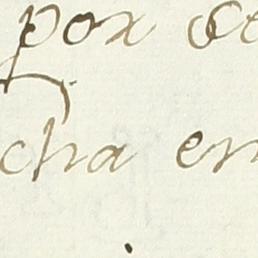 por
cha en